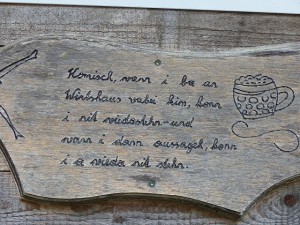 Komisch, wenn i ba an
Wirtshaus vabei kim, konn
i nit wiedastehn - und
wenn i dann aussageh, konn
i a wieda nit stehn.